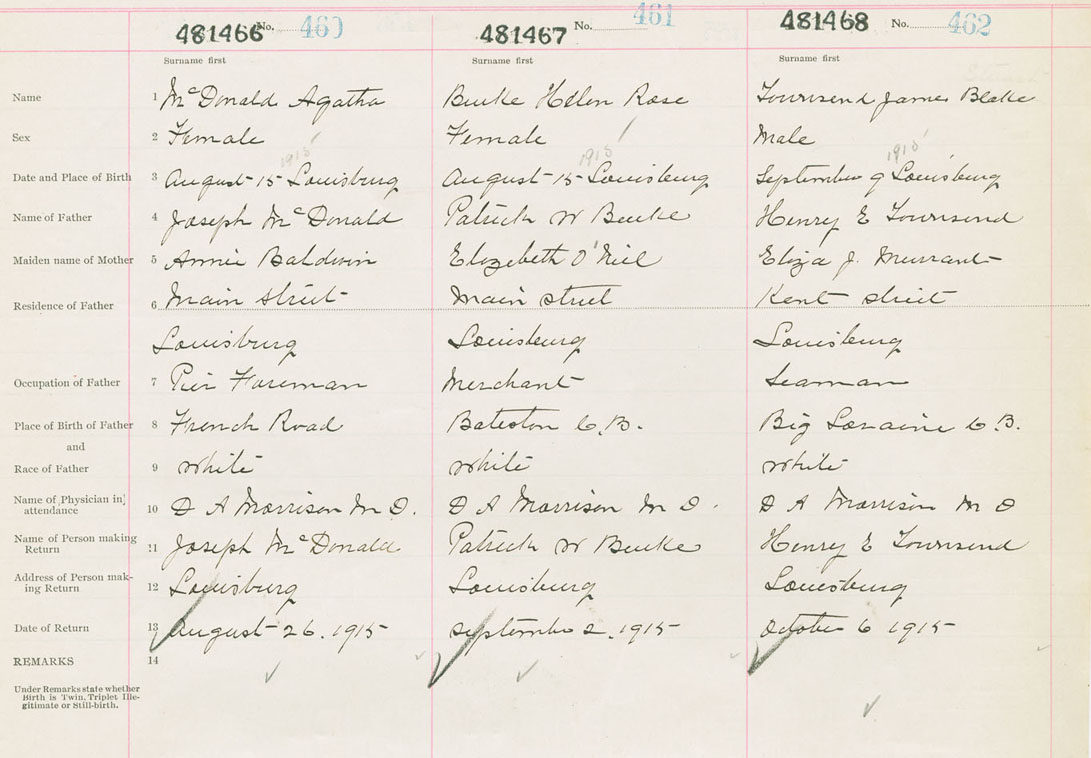 481466 No. 460 481467 No. 461 481468 No. 462
Surname first Surname first Surname first
Name 1 McDonald Agatha Burke Helen Rose Townsend James Blake
Sex 2 Female Female Male
1915 1915 1915
Date and Place of Birth 3 August 15 Louisburg August 15 Louisburg September 9 Louisburg
Name of Father 4 Joseph McDonald Patrick W Burke Henry E Townsend
Maiden name of Mother 5 Annie Baldwin Elizebeth O'Niel Eliza J. Murrant
Residence of Father 6 Main Street Main street Kent street
Louisburg Louisburg Louisburg
Occupation of Father 7 Pier Foreman Merchant Seaman
Place of Birth of Father 8 French Road Bateston C.B. Big Loraine C.B.
and
Race of Father 9 White White White
Name of Physician in attendance 10 D A Morrison M D. D A Morrison M D. D A Morrison M D
Name of Person making Return 11 Joseph McDonald Patrick W Burke Henry E Townsend
Address of Person making Return 12 Louisburg Louisburg Louisburg
Date of Return 13 August 26. 1915 September 2. 1915 October 6 1915
REMARKS 14
Under Remarks state whether
Birth is Twin, Triplet Ille-
gitimate or Still-birth.